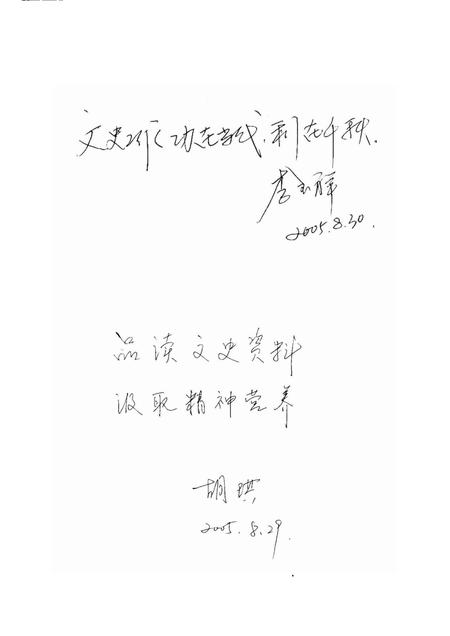 文史工作功在当代,利在千秋.
李
2005.8.30.
品读文史资料
汲取精神营养
胡琪
2005.8.29.